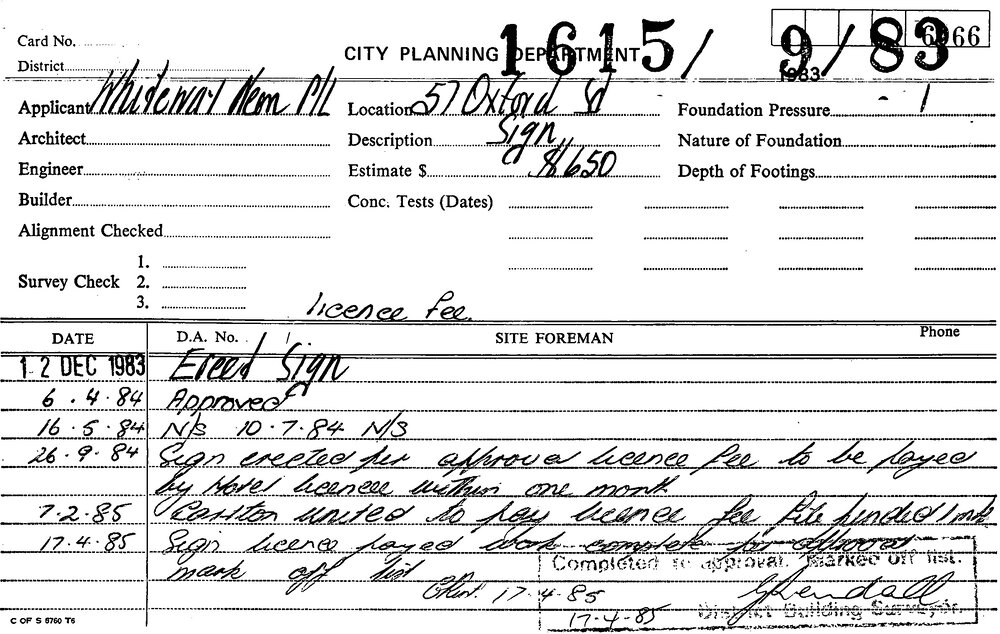 Card No.
CITY PLANNING DEPARTMENT 1615 / 9/83
6966
1983
District
Applicant Whiteway Neon P/L Location 57 Oxford St Foundation Pressure
Architect Description Sign Nature of Foundation
Engineer Estimate $ $1650 Depth of Footings
Builder Conc. Tests (Dates)
Alignment Checked
Survey Check 1.
2.
3.
licence fee.
DATE D.A. No. / SITE FOREMAN Phone
12 DEC 1983 Ereed Sign
6.4.84 Approved
16.5.84 N/S 10.7.84 N/S
26.9.84 Sign erected per approval licence fee to be payed
by Hotel licencee within one month
7.2.85 Carlton united to pay licence fee
17.4.85 Sign licence payed work complete per approval
mark off list
17.4.85
Completed to approval. Marked off list.
17.4.85 District Building Surveyor.
C OF S 6760 T6